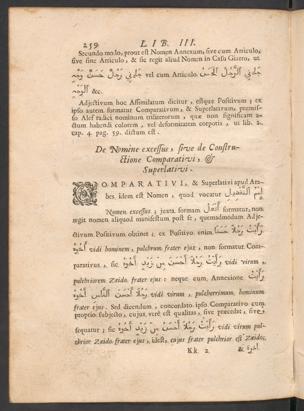 259 LIB. III.
Secundo modo, prout est Nomen Annexum, sive cum Articulo,
sive sine Articulo, & sic regit aliud Nomen in Casu Giatro, ut
جَاءَنِي رَجُلٌ حَسَنٌ وَجْهُهُ vel cum Articulo جَاءَنِي ٱلرَّجُلُ ٱلْحَسَنُ
ٱلْوَجْهِ &c.
Adjectivum hoc Assimilatum dicitur, estque Positivum; ex
ipso autem formatur Comparativum, & Superlativum, præmis-
so Alef radici nominum triliterorum, quæ non significant a-
ctum habendi colorem, vel deformitatem corporis, ut lib. 2.
cap. 4. pag. 59. dictum est.
De Nomine excessus, sive de Constru-
ctione Comparativi, &
Superlativi.
COMPARATIVI, & Superlativi apud Ara-
bes idem est Nomen, quod vocatur إِسْمُ ٱلتَّفْضِيلِ
Nomen excessus; juxta formam أَفْعَلُ formatur, non
regit nomen aliquod manifestum post se, quemadmodum Adje-
ctivum Positivum obtinet; ex Positivo enim رَأَيْتُ رَجُلًا حَسَنًا
أَخُوهُ vidi hominem, pulchrum frater ejus; non formatur Com-
parativus, sic رَأَيْتُ رَجُلًا أَحْسَنَ مِنْ زَيْدٍ أَخُوهُ vidi virum,
pulchriorem Zaido, frater ejus: neque cum Annexione رَأَيْتُ
رَجُلًا أَحْسَنَ ٱلنَّاسِ أَخُوهُ vidi virum, pulcherrimum, hominum
frater ejus. Sed dicendum, concordato ipso Comparativo cum
proprio subjecto, cujus verè est qualitas, sive præcedat, sive
sequatur; sic رَأَيْتُ رَجُلًا أَحْسَنُ مِنْ زَيْدٍ أَخُوهُ vidi virum pul-
chrior Zaido, frater ejus, idest, cujus frater pulchrior est Zaido;
Kk 2. & أَخُوهُ